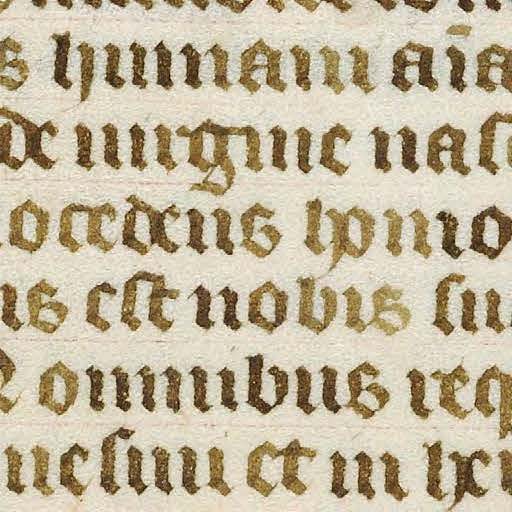 s humani aīa
de uirgine nasc
ocedens homo
us est nobis su
omnibus req
uesiui et in